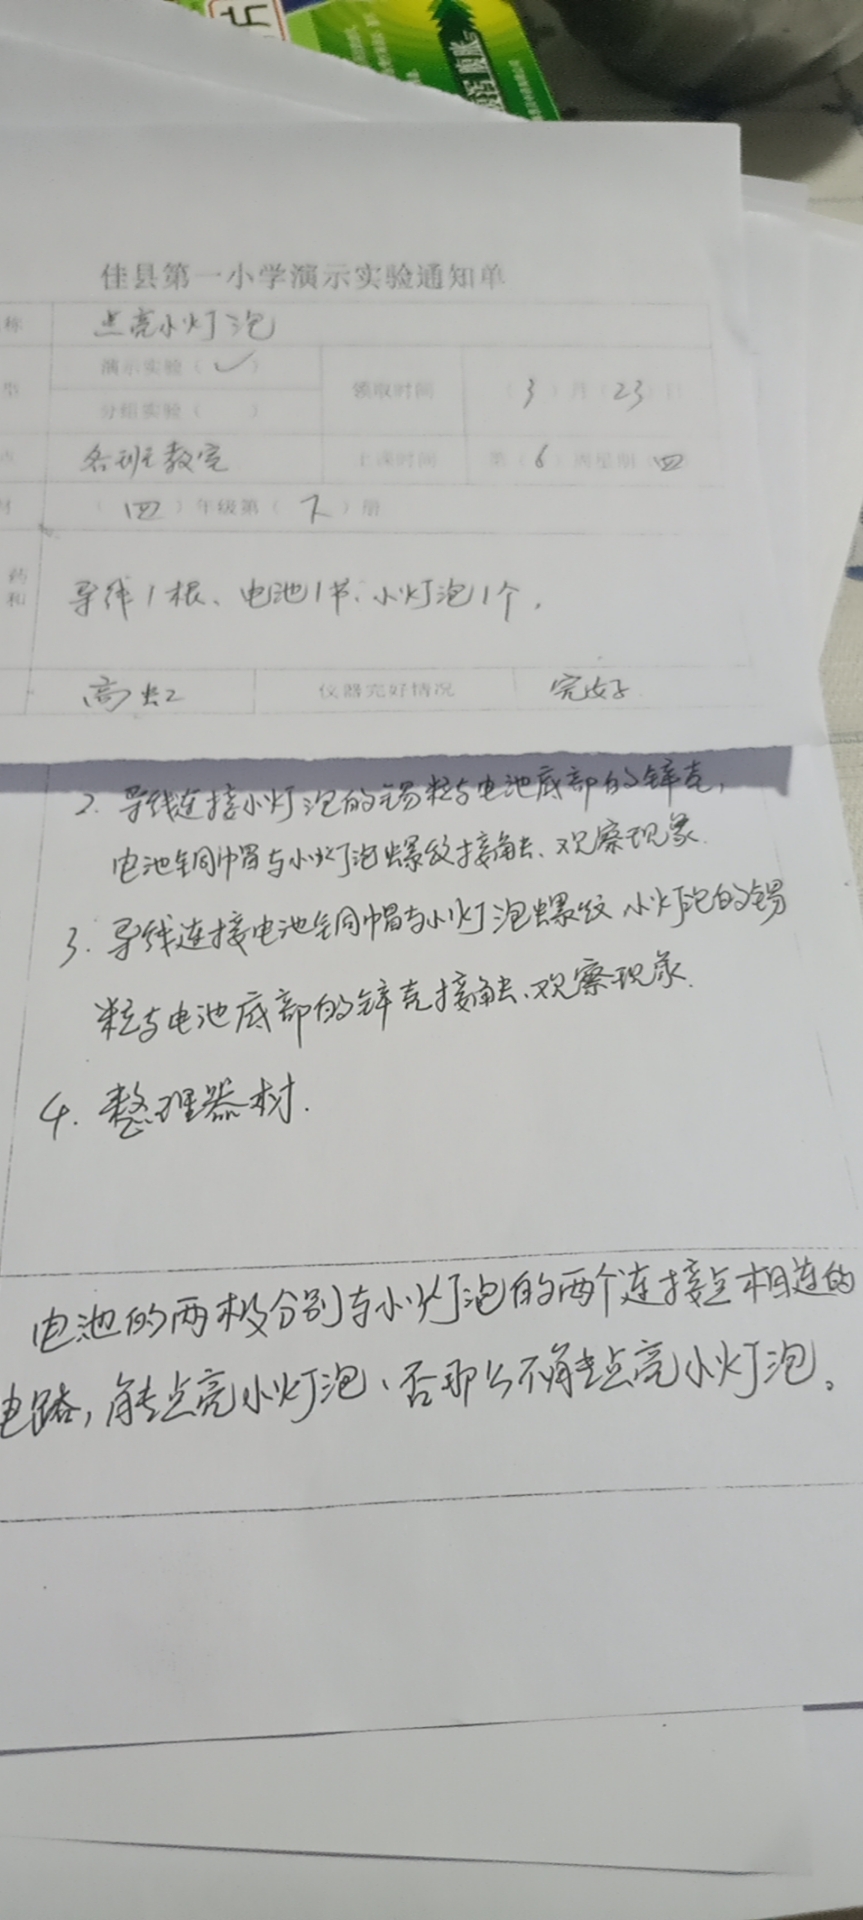 佳县第一小学演示实验通知单
称 点亮小灯泡
型 演示实验（✓）
领取时间 （3）月（23）日
分组实验（ ）
各班教室 上课时间 第（6）周星期 四
材 （四）年级第（下）册
药
和 导线1根、电池1节、小灯泡1个，
仪器完好情况 完好
2. 导线连接小灯泡的锡粒与电池底部的锌壳，
电池铜帽与小灯泡螺纹接触、观察现象.
3. 导线连接电池铜帽与小灯泡螺纹 小灯泡的锡
粒与电池底部的锌壳接触、观察现象.
4. 整理器材.
电池的两极分别与小灯泡的两个连接点相连的
电路，能点亮小灯泡、否那么不能点亮小灯泡。